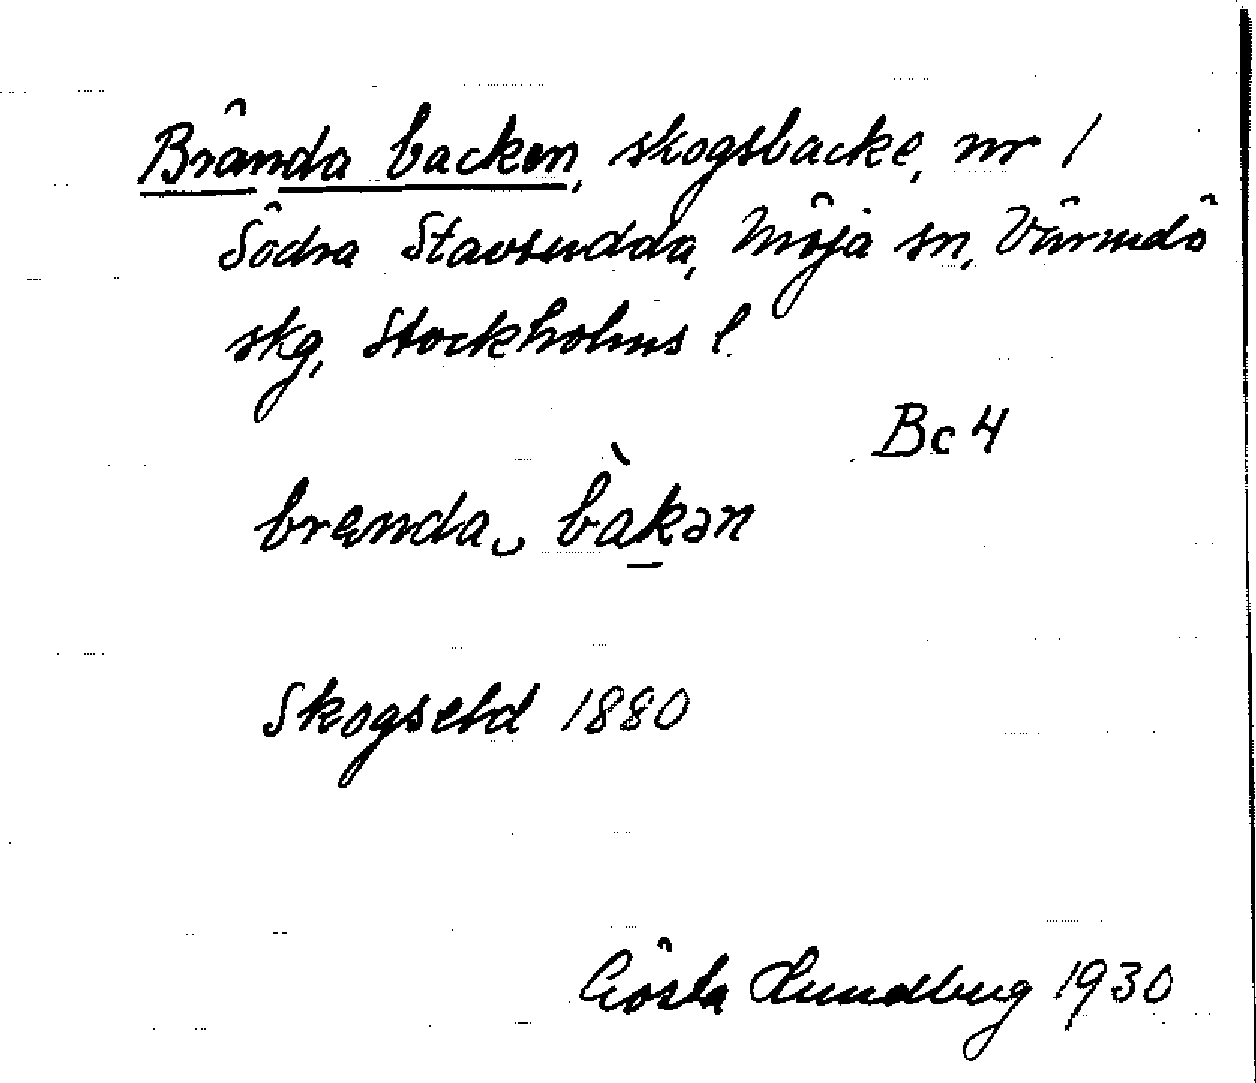 Brända backen, skogsbacke, nr 1
Södra Stavsudda, Möja sn, Värmdö
skg, Stockholms l.
Bc 4
brɛnda‿ bàkən
Skogseld 1880
Gösta Lundberg 1930